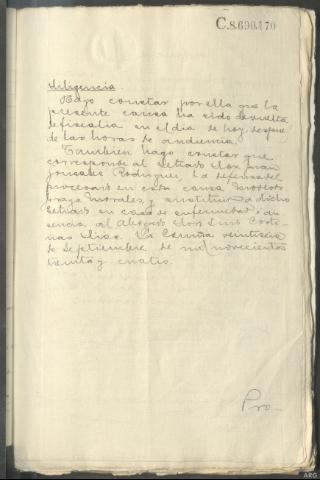 C.8690.170
diligencia
Hago constar por ella que la
presente causa ha sido devuelta
de fiscalia en el dia de hoy, despues
de las horas de audiencia.
Tambien hago constar que
corresponde al Letrado don Juan
Gonzalez Rodriguez, la defensa del
procesado en esta causa
Morales, y sustituira a dicho
Letrado en caso de enfermedad o au-
sencia al Abogado don Luis
La Coruña
de Septiembre de mil novecientos
treinta y cuatro.
Pro-
ARG